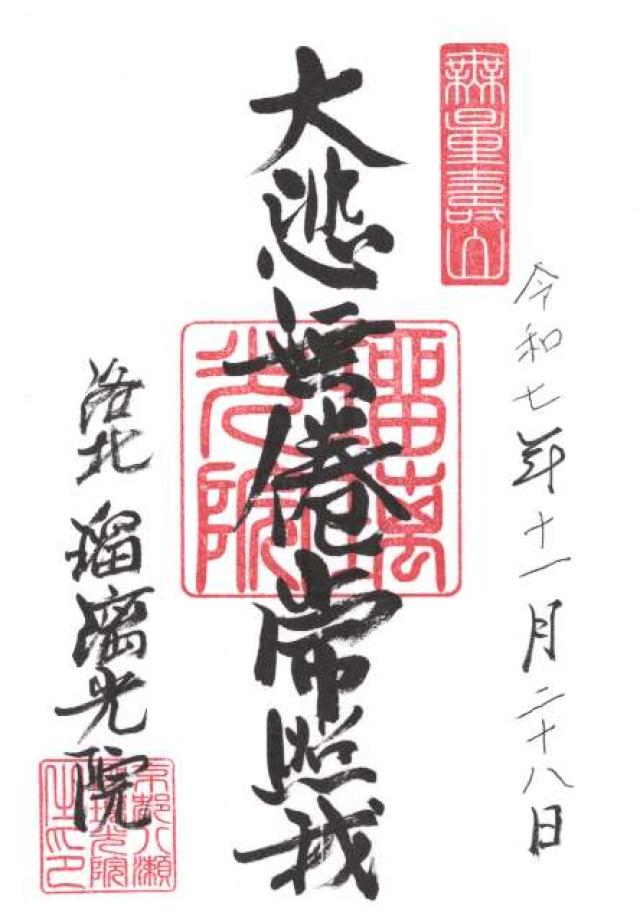 無量壽山
令和七年十一月二十八日
大悲無倦常照我
瑠璃光院
洛北 瑠璃光院
京都八瀬
瑠璃光院
之印